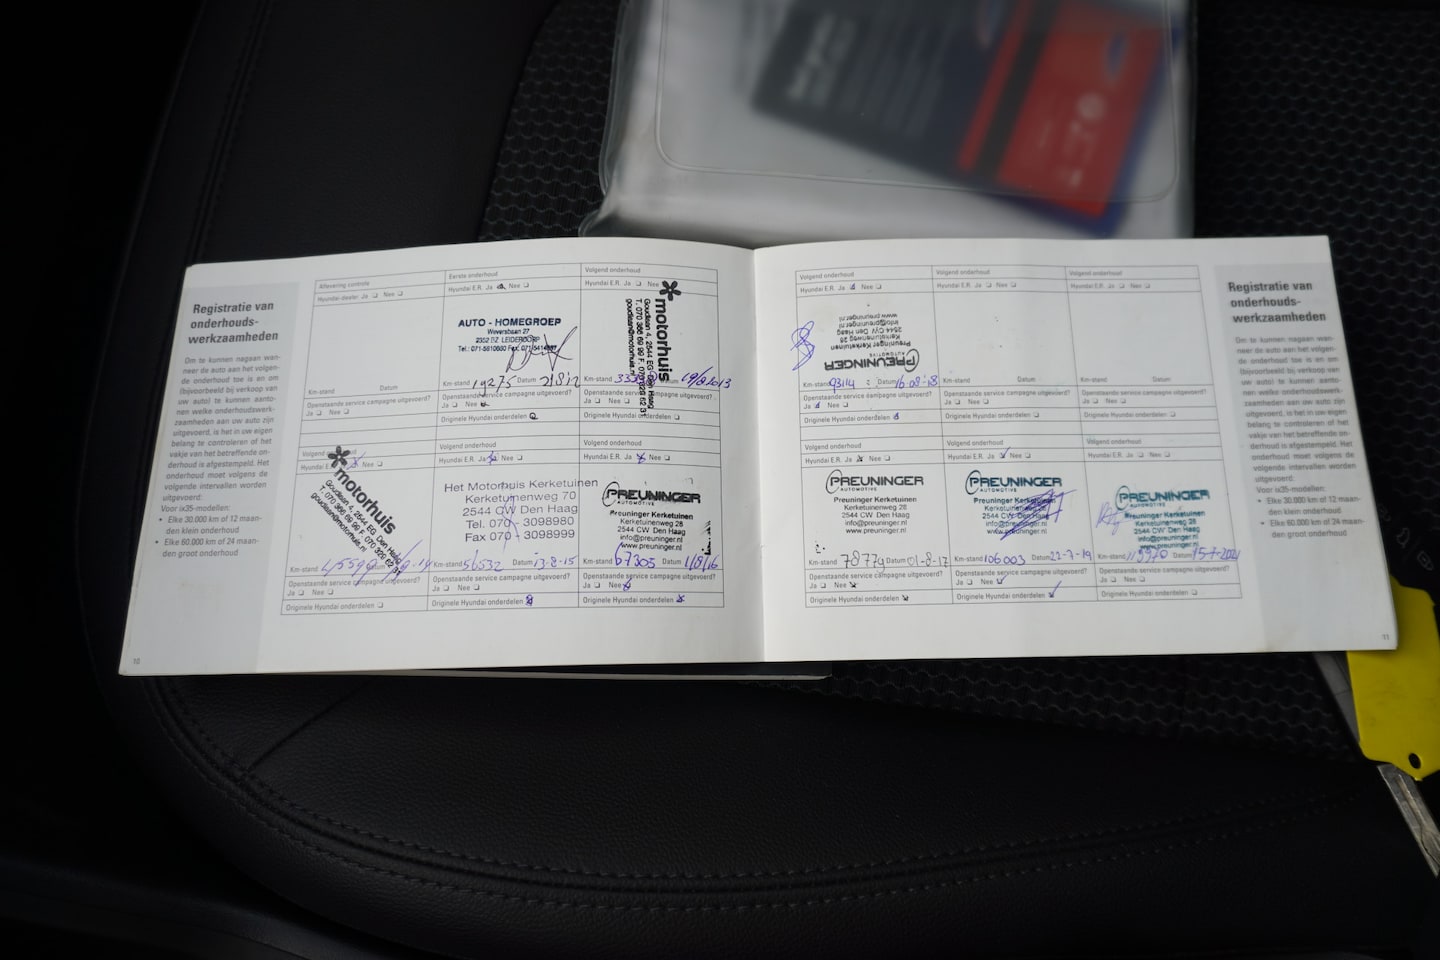 Registratie van
onderhouds-
werkzaamheden
Om te kunnen nagaan wan-
neer de auto aan het volgen-
de onderhoud toe is en om
(bijvoorbeeld bij verkoop van
uw auto) te kunnen aanto-
nen welke onderhoudswerk-
zaamheden aan uw auto zijn
uitgevoerd, is het in uw eigen
belang te controleren of het
vakje van het betreffende on-
derhoud is afgestempeld. Het
onderhoud moet volgens de
volgende intervallen worden
uitgevoerd:
Voor ix35-modellen:
• Elke 30.000 km of 12 maan-
den klein onderhoud
• Elke 60.000 km of 24 maan-
den groot onderhoud
10
Aflevering controle
Hyundai-dealer: Ja Nee
Km-stand Datum
Openstaande service campagne uitgevoerd?
Ja Nee
Eerste onderhoud
Hyundai E.R. Ja Nee
AUTO - HOMEGROEP
Weversbaan 27
2352 BZ LEIDERDORP
Km-stand 19275 Datum 21812
Openstaande service campagne uitgevoerd?
Ja Nee
Originele Hyundai onderdelen
Volgend onderhoud
Hyundai E.R. Ja Nee
motorhuis
Goudlaan 4, 2544 EG Den Haag
goudlaan@motorhuis.nl
Km-stand Datum 19/8/2013
Openstaande service campagne uitgevoerd?
Ja Nee
Originele Hyundai onderdelen
Volgend onderhoud
Hyundai E.R. Nee
motorhuis
Goudlaan 4, 2544 EG Den Haag
goudlaan@motorhuis.nl
Km-stand Datum
Openstaande service campagne uitgevoerd?
Ja Nee
Originele Hyundai onderdelen
Volgend onderhoud
Hyundai E.R. Ja Nee
Het Motorhuis Kerketuinen
Kerketuinenweg 70
2544 CW Den Haag
Tel. 070 - 3098980
Fax 070 - 3098999
Km-stand 56532 Datum 13-8-15
Openstaande service campagne uitgevoerd?
Ja Nee
Originele Hyundai onderdelen
Volgend onderhoud
Hyundai E.R. Ja Nee
PREUNINGER
AUTOMOTIVE
Preuninger Kerketuinen
Kerketuinenweg 28
2544 CW Den Haag
info@preuninger.nl
www.preuninger.nl
Km-stand 67305 Datum 1/8/16
Openstaande service campagne uitgevoerd?
Ja Nee
Originele Hyundai onderdelen
Volgend onderhoud
Hyundai E.R. Ja Nee
PREUNINGER
AUTOMOTIVE
Preuninger Kerketuinen
Kerketuinenweg 28
2544 CW Den Haag
info@preuninger.nl
www.preuninger.nl
Km-stand 93114 Datum 16-08-18
Openstaande service campagne uitgevoerd?
Ja Nee
Originele Hyundai onderdelen
Volgend onderhoud
Hyundai E.R. Ja Nee
Km-stand Datum
Openstaande service campagne uitgevoerd?
Ja Nee
Originele Hyundai onderdelen
Volgend onderhoud
Hyundai E.R. Ja Nee
Km-stand Datum
Openstaande service campagne uitgevoerd?
Ja Nee
Originele Hyundai onderdelen
Volgend onderhoud
Hyundai E.R. Ja Nee
PREUNINGER
AUTOMOTIVE
Preuninger Kerketuinen
Kerketuinenweg 28
2544 CW Den Haag
info@preuninger.nl
www.preuninger.nl
Km-stand 78779 Datum 01-8-17
Openstaande service campagne uitgevoerd?
Ja Nee
Originele Hyundai onderdelen
Volgend onderhoud
Hyundai E.R. Ja Nee
PREUNINGER
AUTOMOTIVE
Preuninger Kerketuinen
Kerketuinenweg 28
2544 CW Den Haag
info@preuninger.nl
www.preuninger.nl
Km-stand 106003 Datum 22-7-19
Openstaande service campagne uitgevoerd?
Ja Nee
Originele Hyundai onderdelen
Volgend onderhoud
Hyundai E.R. Ja Nee
PREUNINGER
AUTOMOTIVE
Preuninger Kerketuinen
Kerketuinenweg 28
2544 CW Den Haag
info@preuninger.nl
www.preuninger.nl
Km-stand Datum
Openstaande service campagne uitgevoerd?
Ja Nee
Originele Hyundai onderdelen
Registratie van
onderhouds-
werkzaamheden
Om te kunnen nagaan wan-
neer de auto aan het volgen-
de onderhoud toe is en om
(bijvoorbeeld bij verkoop van
uw auto) te kunnen aanto-
nen welke onderhoudswerk-
zaamheden aan uw auto zijn
uitgevoerd, is het in uw eigen
belang te controleren of het
vakje van het betreffende on-
derhoud is afgestempeld. Het
onderhoud moet volgens de
volgende intervallen worden
uitgevoerd:
Voor ix35-modellen:
• Elke 30.000 km of 12 maan-
den klein onderhoud
• Elke 60.000 km of 24 maan-
den groot onderhoud
11